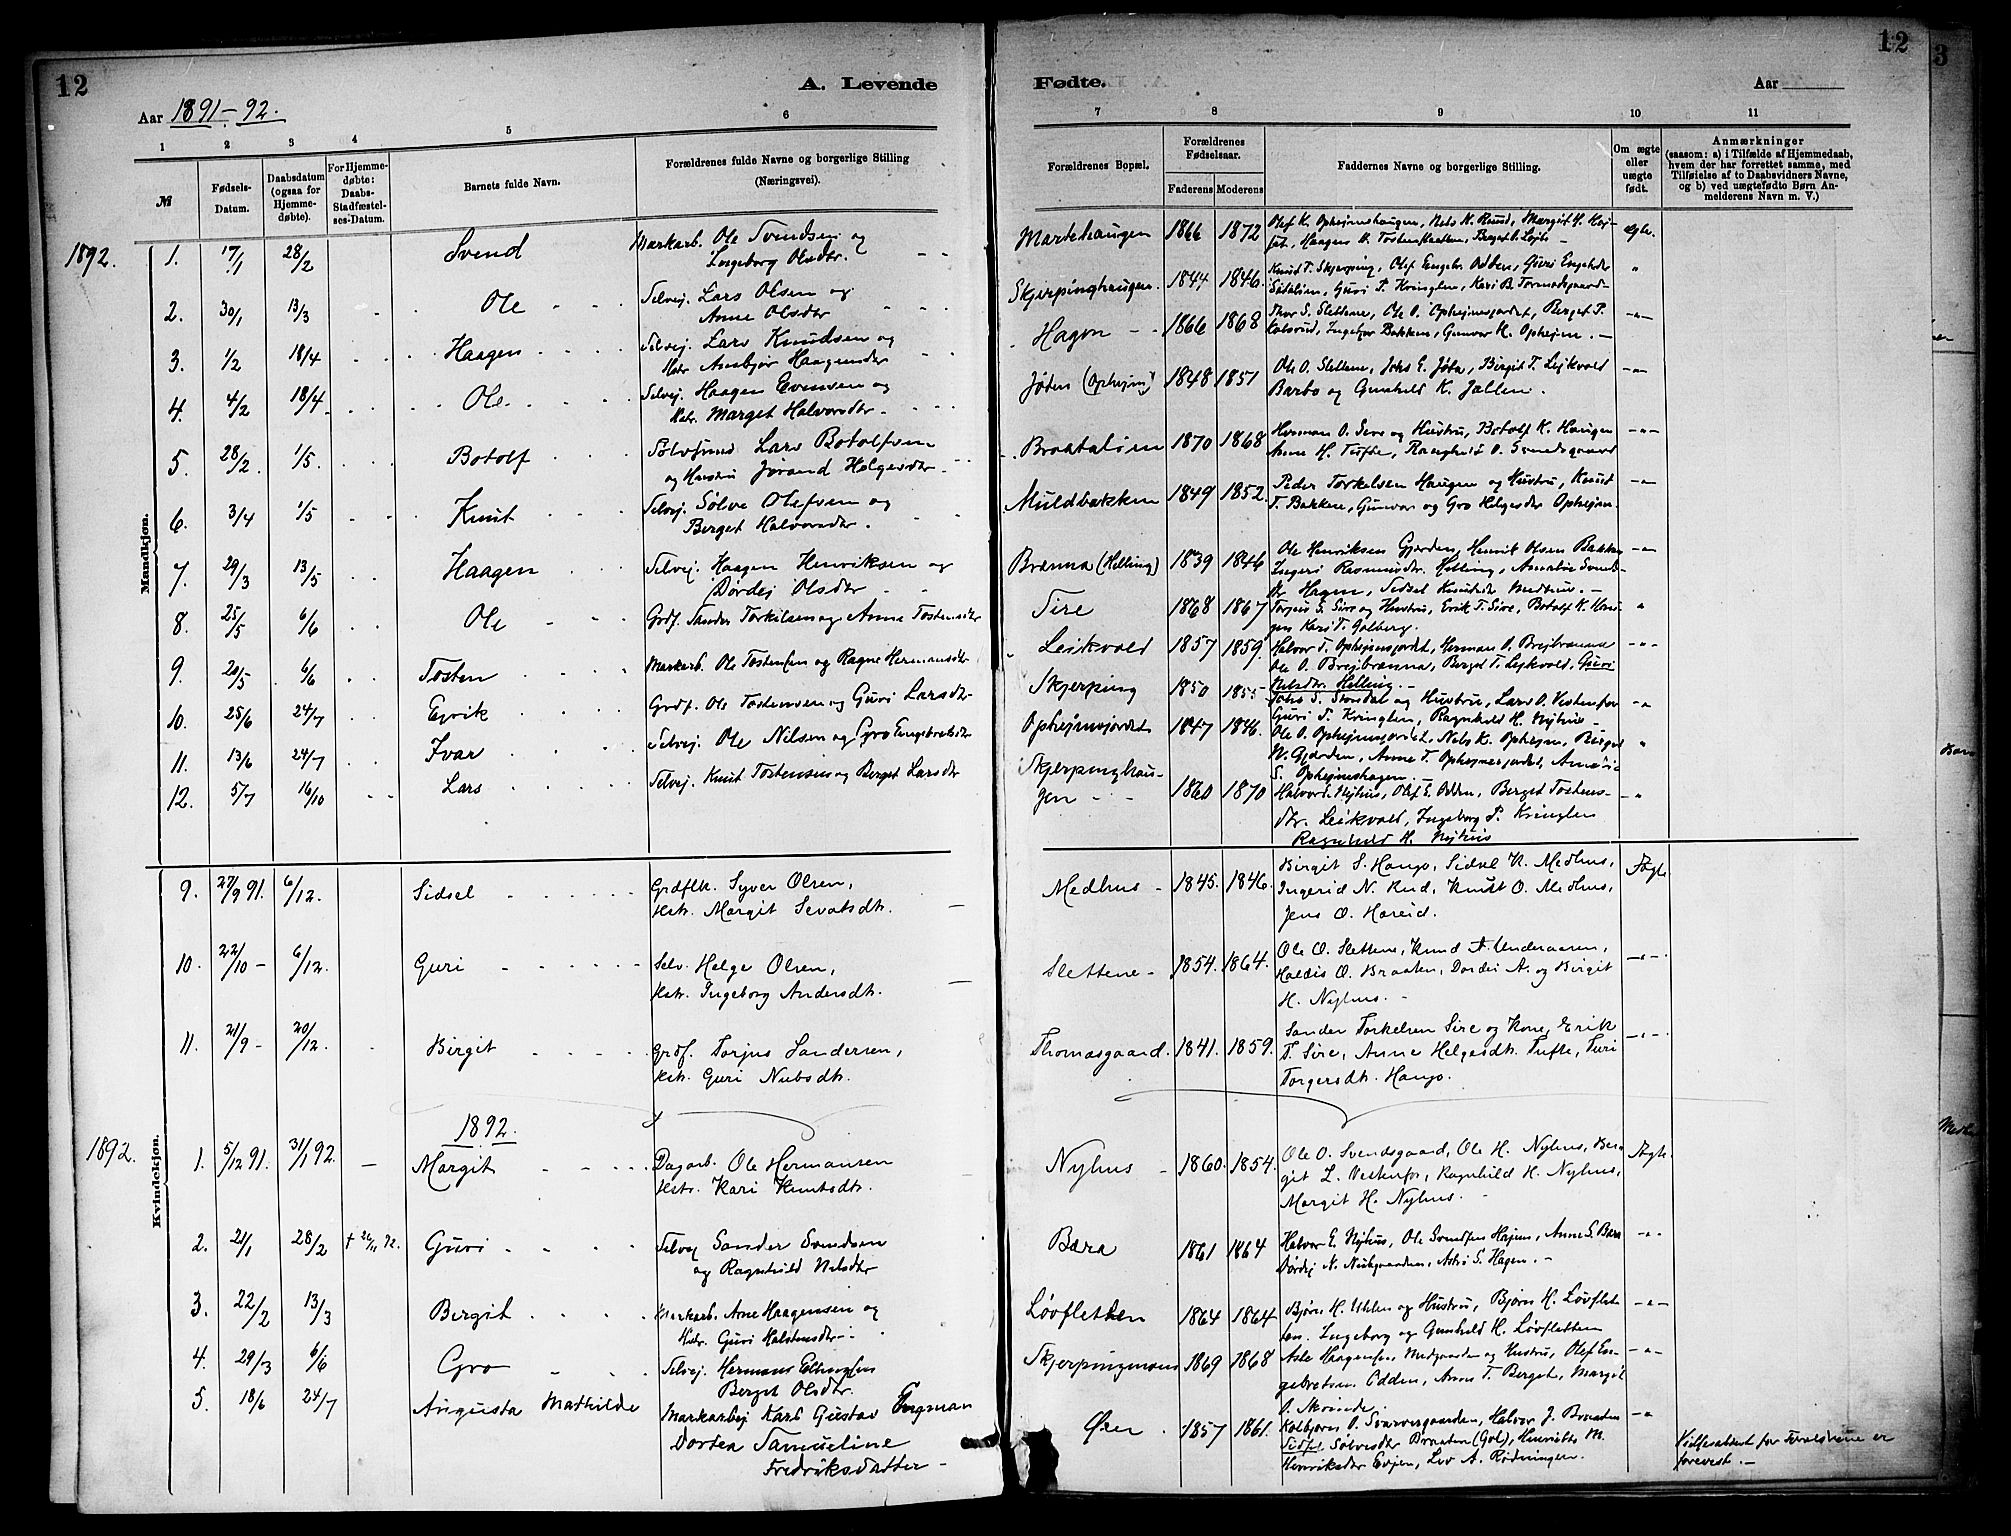 12
A. Levende
Aar 1891-92.
1 2 3 4 5 6
№
Fødsels-Datum.
Daabsdatum (ogsaa for Hjemme-døbte).
For Hjemme-døbte: Daabs-Stadfæstel-ses-Datum.
Barnets fulde Navn.
Forældrenes fulde Navne og borgerlige Stilling
(Næringsvei).
Mandkjøn.
1892. 1. 17/1 28/2 Svend Markarb. Ole Svendsen og
Ingeborg Olsdtr.
2. 30/1 13/3 Ole Selvej. Lars Olsen og
Anne Olsdtr
3. 1/2 18/4 Haagen Selvej. Lars Knudsen og
Hstr Annbjør Haagensdtr
4. 4/2 18/4 Ole Selvej. Haagen Evensen og
Hstr. Marget Halvorsdtr.
5. 28/2 1/5 Botolf Lars Botolfsen
og Hustru Jørand Helgesdtr.
6. 3/4 1/5 Knut Selvej. Sølve Olefsen og
Berget Halvorsdtr.
7. 29/3 13/5 Haagen Selvej. Haagen Henriksen og
Dørdej Olsdtr
8. 25/5 6/6 Ole Grdf. Sander Torkilsen og Anne Tostensdtr
9. 20/5 6/6 Tosten Markarb. Ole Tostensen og Ragne Hermansdtr
10. 25/6 24/7 Eyrik Grdf. Ole Tostensen og Guri Larsdtr
11. 13/6 24/7 Ivar Selvej. Ole Nilsen og Gro Engebretsdtr
12. 5/7 16/10 Lars Selvej. Knut Tostensen og Berget Larsdtr
9. 27/9 91. 6/12. Sidsel Grdflk. Syver Olsen,
Hstr. Margit Sevatsdtr.
10. 22/10 - 6/12. Guri Selv. Helge Olsen,
Hstr. Ingeborg Andersdtr.
11. 21/9 - 20/12. Birgit Grdf. Torjus Sandersen,
Hstr. Guri Nubsdtr.
Kvindekjøn.
1892.
1892. 1. 5/12 91. 31/1 92. Margit Dagarb. Ole Hermansen
Hstr. Kari Knutsdtr.
2. 21/1 28/2 † 26/11 92. Guri Selvej Sander Svendsen
og Ragnhild Nilsdtr
3. 22/2 13/3 Bergit Markarb. Arne Haagensen og
Hstr. Guri Halstensdtr
4. 29/3 6/6 Gro Selvej. Herman
Berget Olsdtr.
5. 18/6 24/7 Augusta Mathilde Markarbej Karl Gustav Engman
Dortea Samueline
Fredriksdatter -
12
Fødte.
Aar
7 8 9 10 11
Forældrenes Bopæl.
Forældrenes Fødselsaar.
Faderens Moderens
Faddernes Navne og borgerlige Stilling.
Om ægte eller uægte født.
Anmærkninger
(saasom: a) i Tilfælde af Hjemmedaab, hvem der har forrettet samme, med Tilføielse af to Daabsvidners Navne, og b) ved uægtefødte Børn Anmelderens Navn m. V.)
Martehaugen 1866 1872 Olef K. Ophejmshaugen, Nels N. Ruud, Margit H.
Haagen O. Berget O. ægte.
Skjerpinghaugen. 1844 1846. Knud T. Skjerping, Olef Engebr. Odden, Guri Engebrdtr
Guri T. Kringlen, Kari B. Tormodsgaard
Hagen 1866 1868 Thor S. Slettene, Ole O. Ophejmsjordet, Berget T.
Ingebjør Bakken, Gunvor H. Ophejm.
Jøten (Ophejm) 1848 1851 Ole O. Slettene, Johs E. Jøta, Birgit T. Lejkvold
Barbo og Gunhild K. Jallen.
Braatalien 1870 1868 Herman O. Sire og Hustru, Botolf K. Haugen
Anne H. Tufte, Ragnhild O. Svendsgaard
Muldbakken 1849 1852. Peder Torkelsen Haugen og Hustru, Knut
T. Bakken, Gunvor og Gro Helgesdtr Ophejm.
Brænna (Helling) 1839 1846 Ole Henriksen Gjerden, Henrik Olsen Bakken
Ingeri Rasmusdtr. Helling, Annbiør Svends-
dtr Hagen, Sidsel Knudsdtr Medhus. -
Sire 1868 1867 Torjus S. Sire og Hustru, Erik T. Sire, Botolf K. Hau-
gen Kari T. Golberg.
Leikvold 1857 1859. Halvor T. Ophejmsjordet, Herman O. Brejbrænna
Ole O. Brejbrænna, Berget T. Lejkvold, Guri
Nilsdtr. Helling. -
Skjerping 1850 1855 Johs S. og Hustru, Lars O. Vestenfor
Guri T. Kringlen, Ragnhild H. Nyhus -
Ophejmsjordet 1847 1846. Ole O. Ophejmsjordet, Nels K. Ophejm, Berget
N. Gjerden, Anne T. Ophejmsjordet,
S. Ophejmshagen.
Skjerpinghau-
gen - 1860 1870 Halvor E. Nyhus, Olef E. Odden, Berget Tostens-
dtr. Leikvold, Ingeborg T. Kringlen
Ragnhild H. Nyhus
Medhus - 1845. 1846. Birgit S. Haugo, Sidsel K. Medhus,
Ingerid N. Rud, Knut O. Medhus,
Jens O. Hareid. Ægte
Slettene - 1854. 1864. Ole O. Slettene, Knud A. Underaasen,
Haldis O. Braaten, Dordei A. og Birgit
H. Nyhus. -
Thomasgaard. 1841. 1859. Sander Torkelsen Sire og Kone, Erik
T. Sire, Anne Helgesdtr. Tufte, Turi
Torgersdtr. Haugo.
Nyhus - 1860. 1854. Ole O. Svendsgaard, Ole H. Nyhus, Ber-
git L. Vestenfor, Ragnhild H. Nyhus,
Margit H. Nyhus. - Ægte
Bæra 1861 1864 Halvor E. Nyhus, Ole Svendsen Hagen, Anne S. Bæra
Dørdej N. Nubgaarden, Astri S. Hagen. -
Løvfletten 1864 1864 Bjørn H. Uhlen og Hustru, Bjørn H. Løvflet-
ten. Ingeborg og Gunhild H. Løvfletten
Skjerpingmoen 1869 1868 Asle Haagensen, Medgaarden og Hustru, Olef En-
gebretsen Odden, Anne T. Berget, Margit
O.
Øen 1857 1861. Kolbjørn O. Halvor J. Braaten
Sidsel Sølvesdtr Braaten (Gol), Henriette M.
Henriksdtr Evjen, Lev A. Rødningen.
Vielsesattest for Forældrene er
forevist. -
3